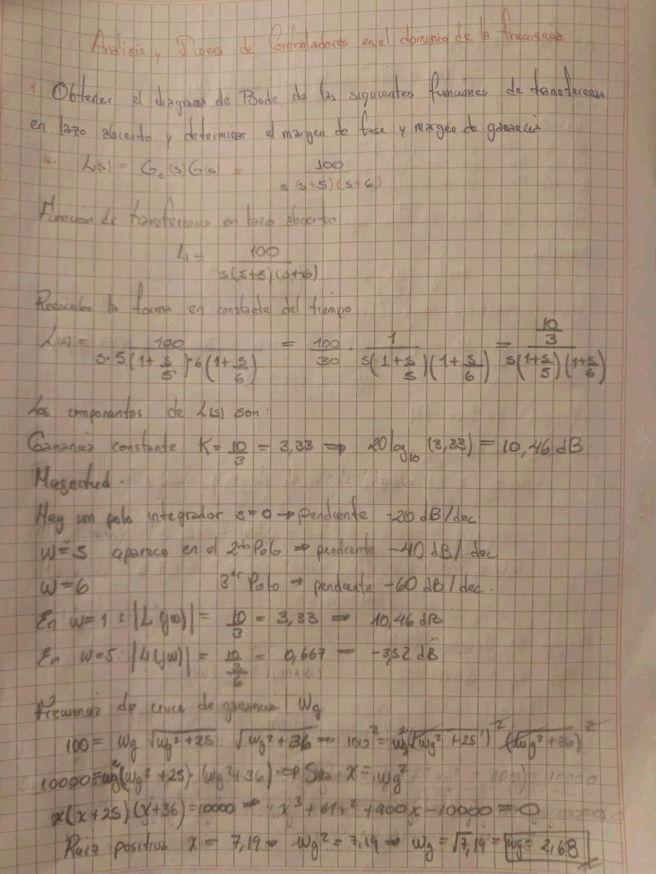 Análisis y Diseño de Controladores en el dominio de la frecuencia
1. Obtener el diagrama de Bode de las siguientes funciones de transferencia
en lazo abierto y determinar el margen de fase y margen de ganancia
a. L(s) = Gc(s)G(s) = 100 / s(s+5)(s+6)
Función de transferencia en lazo abierto
L = 100 / s(s+5)(s+6)
la forma en constante del tiempo
L(s) = 100 / s·5(1+s/5)·6(1+s/6) = 100/30 · 1 / s(1+s/5)(1+s/6) = 10/3 / s(1+s/5)(1+s/6)
Los componentes de L(s) son:
Ganancia constante K = 10/3 = 3,33 ⇒ 20log10 (3,33) = 10,46 dB
Magnitud.
Hay un polo integrador s=0 → pendiente -20 dB/dec
W=5 aparece en el 2do Polo ⇒ pendiente -40 dB/dec
W=6 3er Polo → pendiente -60 dB/dec.
En w=1 : |L(jω)| = 10/3 = 3,33 ⇒ 10,46 dB
En w=5 |L(jω)| = = 0,667 = -3,52 dB
Frecuencia de cruce de ganancia Wg
100 = wg √wg²+25 √wg²+36 ⇒ 100² = wg²(√wg²+25)² (√wg²+36)²
10000 = wg²(wg²+25)·(wg²+36) ⇒ Sea x = wg²
x(x+25)(x+36) = 10000 ⇒ x³+61x²+900x-10000 = 0
Raíz positiva x = 7,19 ⇒ wg² = 7,19 ⇒ wg = √7,19 = wg = 2,68